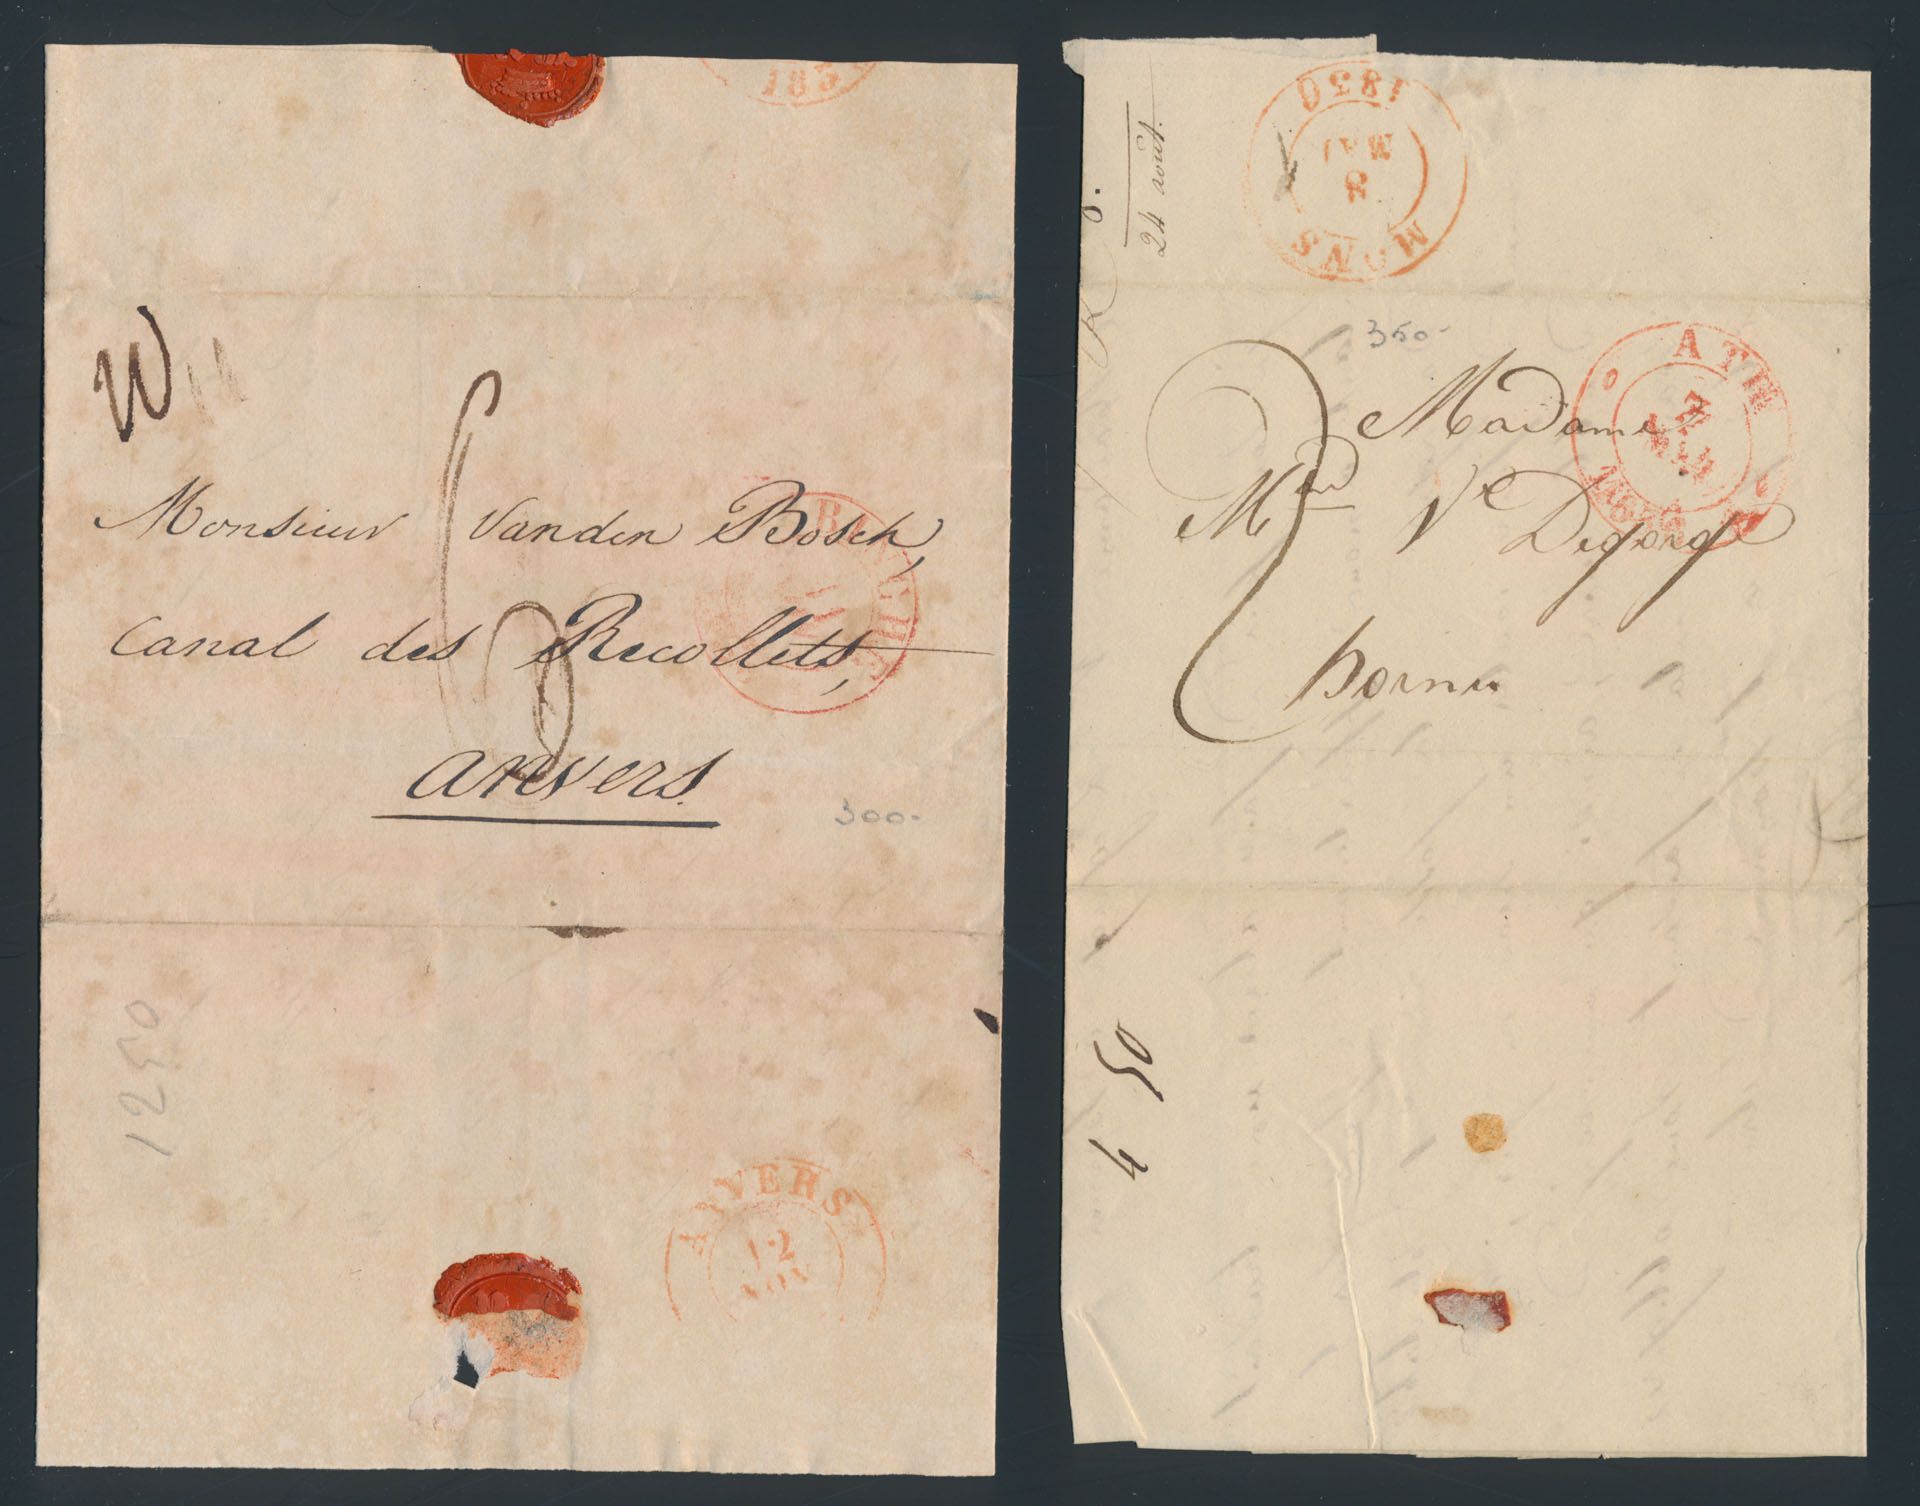 183
W
Monsieur Vanden Bosch,
Canal des Recollets,
anvers.
300.-
1250
ANVERS
12
NOV
1830
MAI
8
MONS
24 août.
350-
ATH
7
MAI
Madame
Md Ve Degorge
hornu
4 50